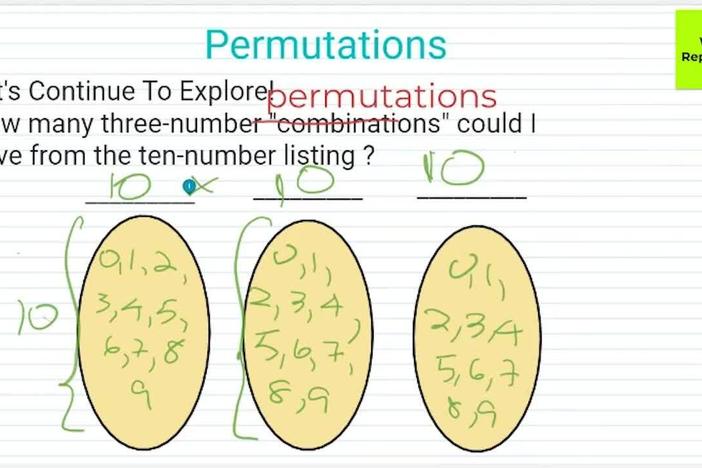 Permutations
t's Continue To Explore!
permutations
w many three-number "combinations" could I
ve from the ten-number listing ?
10 × 10 10
0,1,2,
3,4,5,
6,7,8
9
10
0,1,
2,3,4,
5,6,7,
8,9
0,1,
2,3,4
5,6,7
8,9
Rep